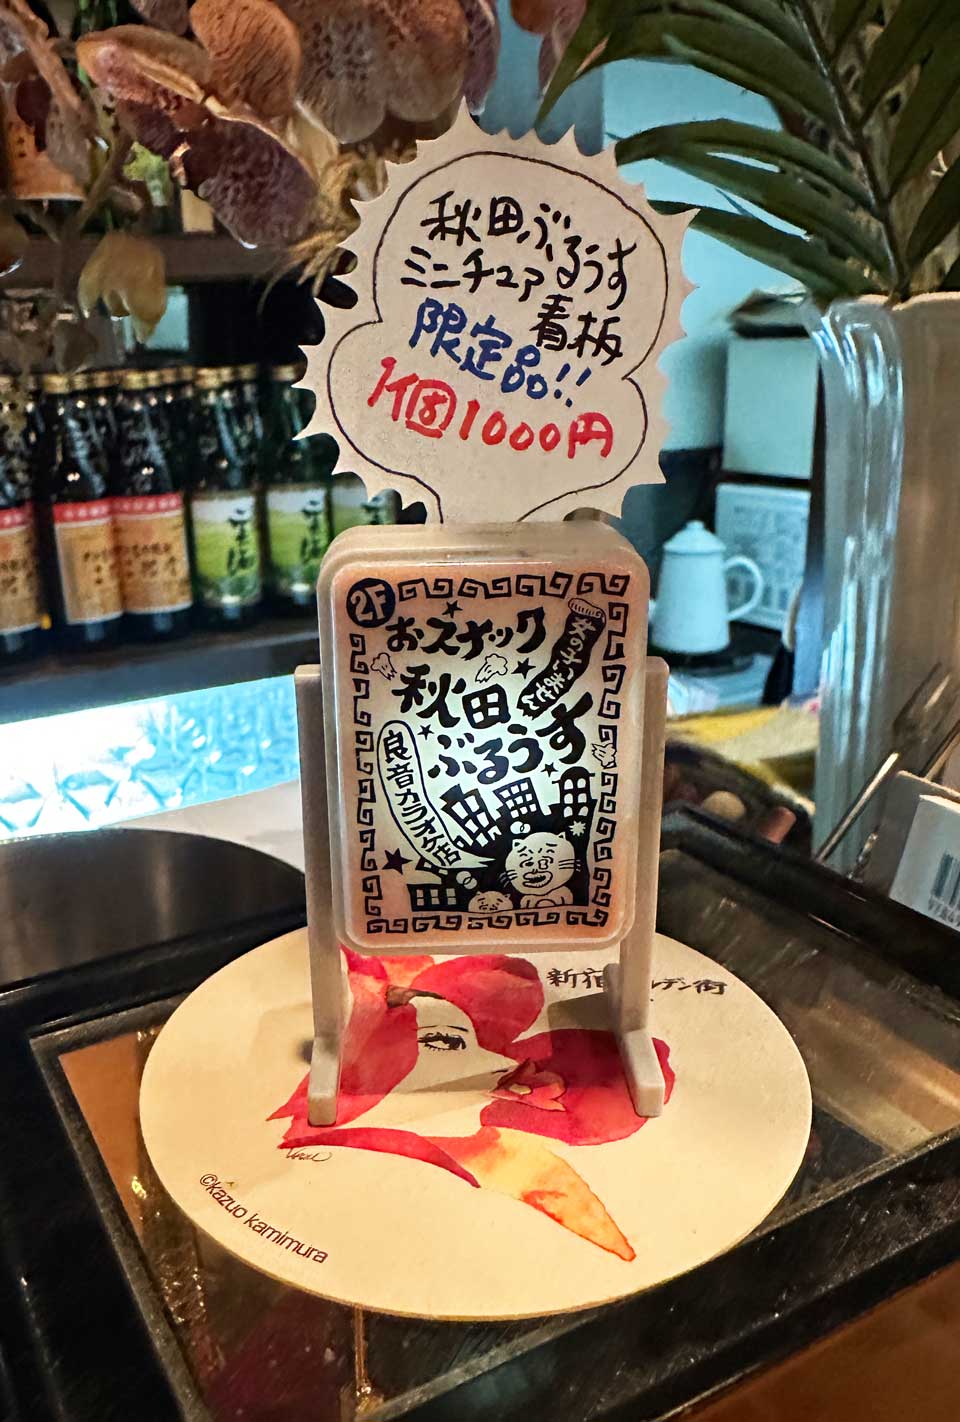 秋田ぶるうす
ミニチュア看板
限定品!!
1個1000円
2F
おスナック
女の子いません
秋田
ぶるうす
良音カラオケ店
新宿
デン街
©kazuo kamimura